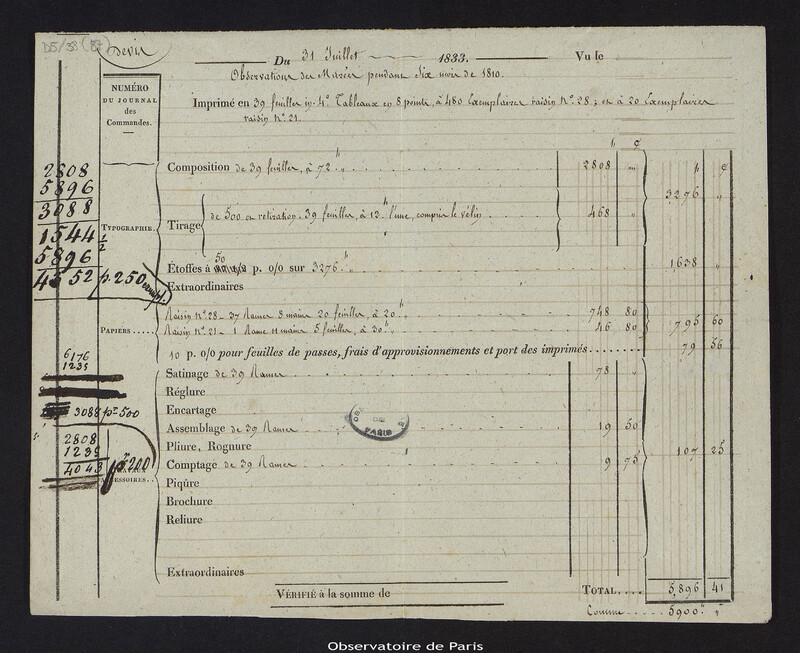 D5/38 (87)
Devis
Du 31 Juillet 1833. Vu le
Observations des Marées pendant Six mois de 1810.
NUMÉRO
DU JOURNAL
des
Commandes.
Imprimé en 39 feuilles in-4° Tableaux en 8 points, à 480 Exemplaires raisin N° 28 ; et à 20 Exemplaires
raisin N° 21.
Composition de 39 feuilles, à 72 fr „ 2808 „
3276 „
Tirage de 500 en retiration. 39 feuilles, à 12 fr l'une, compris le vélin 468 „
TYPOGRAPHIE.
Étoffes à 50 p. o/o sur 3276 fr „ 1,638 „
Extraordinaires
Raisin N° 28 - 37 Rames 8 mains 20 feuilles, à 20 fr „ 748 80
Raisin N° 21 - 1 Rame 11 mains 5 feuilles, à 30 fr „ 46 80
PAPIERS 795 60
10 p. o/o pour feuilles de passes, frais d'approvisionnements et port des imprimés 79 56
Satinage de 39 Rames 78 „
Réglure
Encartage
Assemblage de 39 Rames 19 50
Pliure, Rognure
107 25
Comptage de 39 Rames 9 75
Piqûre
Brochure
Reliure
Extraordinaires
VÉRIFIÉ à la somme de
TOTAL 5,896 41
Comme 5900 fr „
2808
5896
3088
1544 1/2
5896
4352 pr 250 exempl.
6176
1235
3088 pr 500
2808
1235
4043 pr 200
OBS
DE
PARIS
Observatoire de Paris